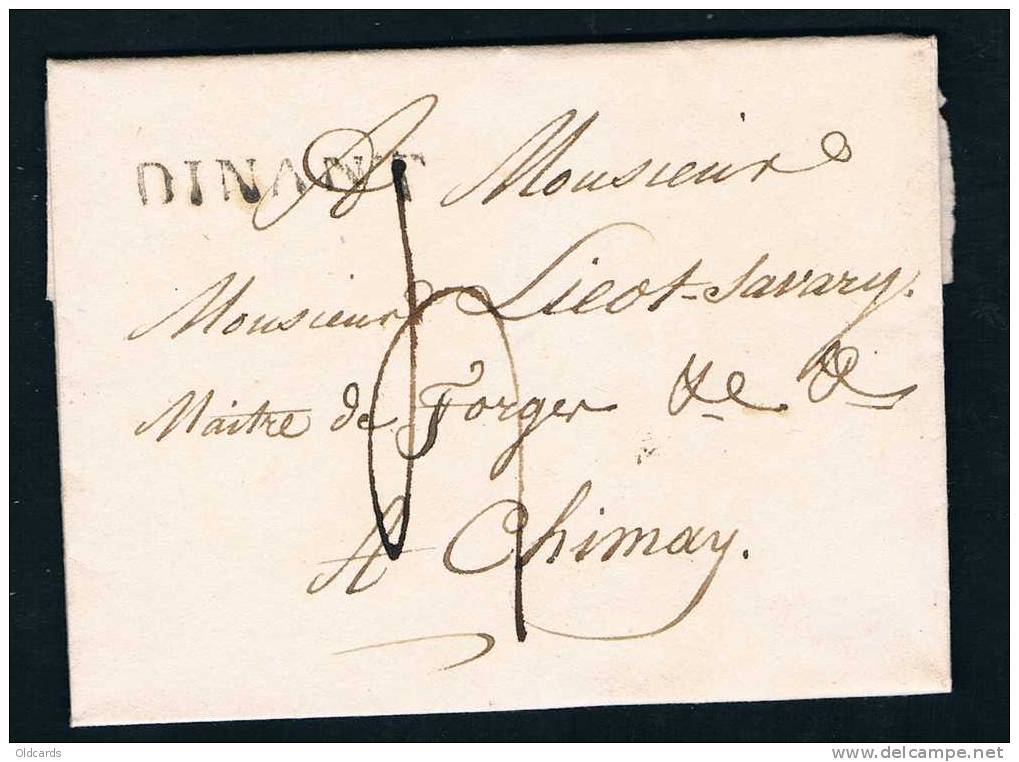 DINANT
A Monsieur
Monsieur Licot-Savary.
Maitre de Forges &c &c
A Chimay.
Oldcards
http://www.delcampe.net